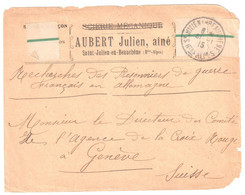 SCIERIE MÉCANIQUE
AUBERT Julien, aîné
Saint-Julien-en-Beauchêne (Htes-Alpes)
Recherches des Prisonniers de guerre
français en Allemagne
Monsieur le Directeur du Comité
de l'Agence de la Croix Rouge
à Genève
Suisse